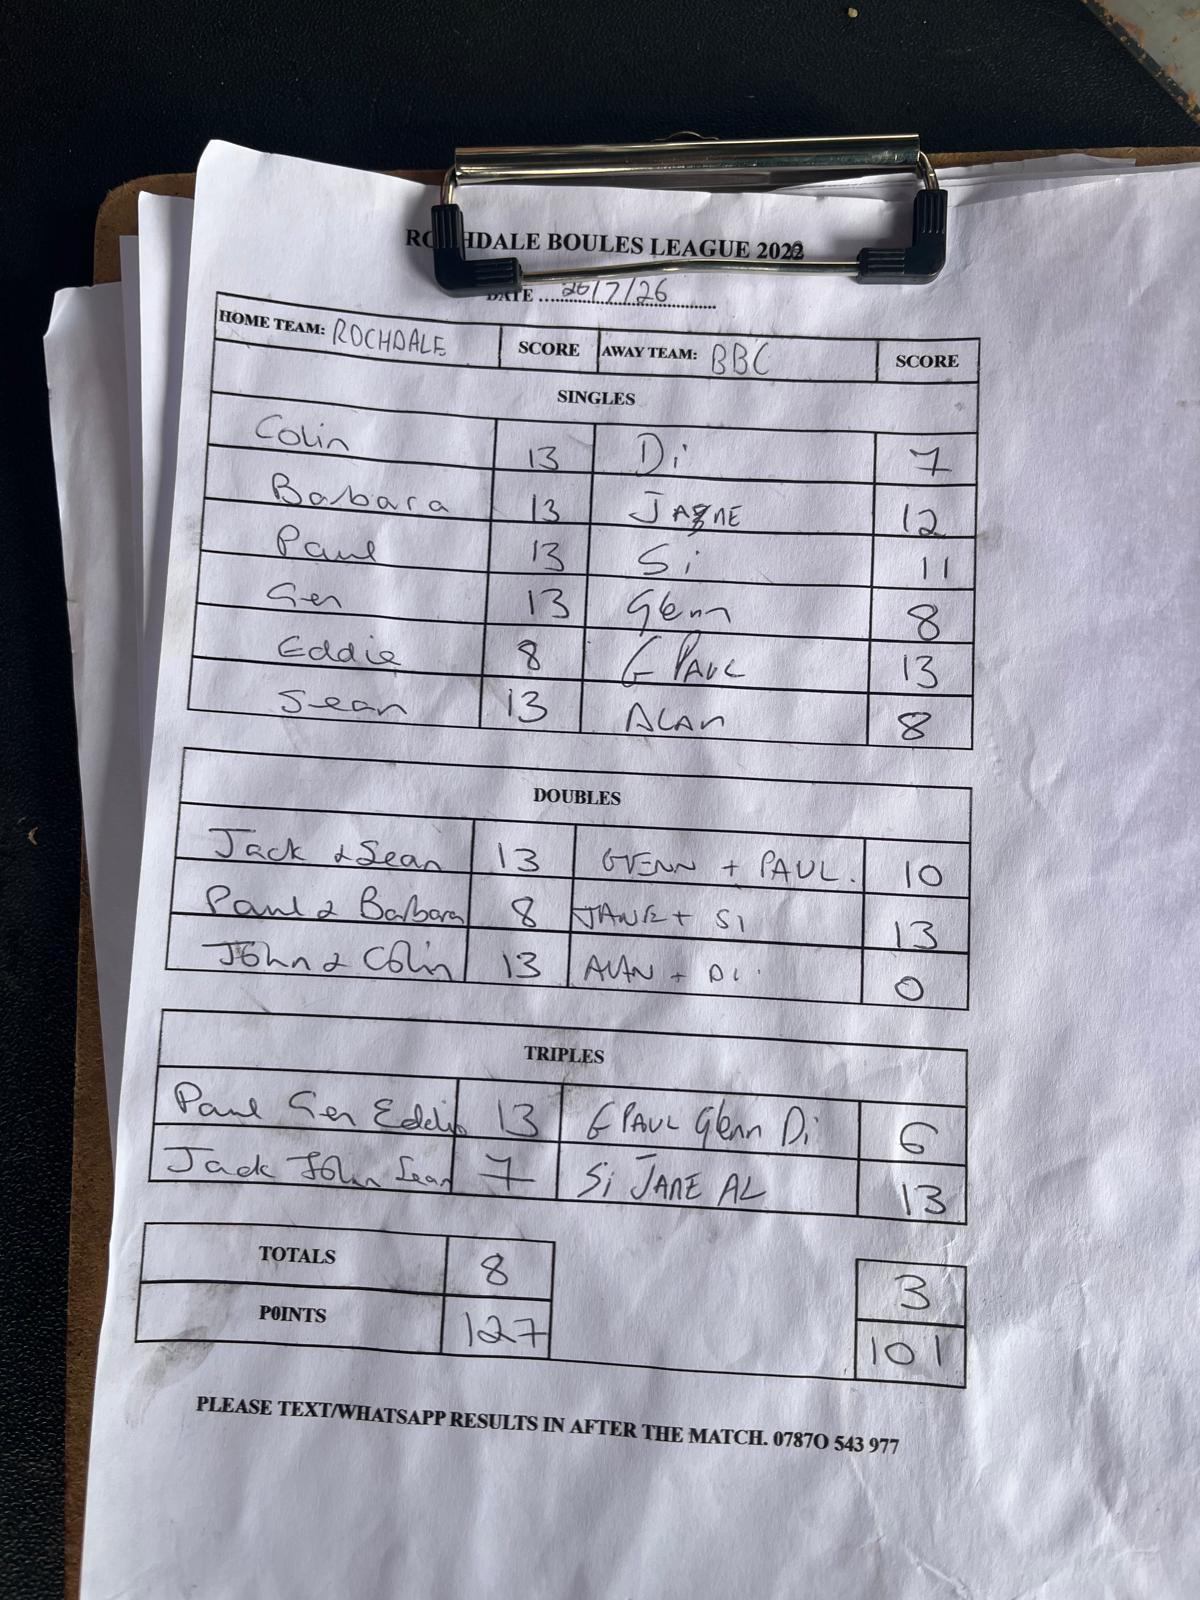 ROCHDALE BOULES LEAGUE 2022
DATE 26/7/26
HOME TEAM: ROCHDALE SCORE AWAY TEAM: BBC SCORE
SINGLES
Colin 13 Di 7
Barbara 13 JANE 12
Paul 13 Si 11
Ger 13 Glenn 8
Eddie 8 G PAUL 13
Sean 13 ALAN 8
DOUBLES
Jack & Sean 13 GLENN + PAUL. 10
Paul & Barbara 8 JANE + SI 13
John & Colin 13 ALAN + DI 0
TRIPLES
Paul Ger Eddie 13 G PAUL Glenn Di 6
Jack John Sean 7 Si JANE AL 13
TOTALS 8 3
POINTS 127 101
PLEASE TEXT/WHATSAPP RESULTS IN AFTER THE MATCH. 0787O 543 977